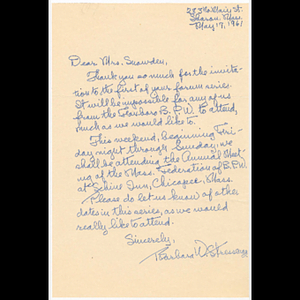 Sharon, Mass.
May 17, 1961
Dear Mrs. Snowden,
Thank you so much for the invita-
tion to the first of your forum series.
It will be impossible for any of us
from the Foxboro B.P.W. to attend,
much as we would like to.
This weekend, beginning Fri-
day night through Sunday, we
shall be attending the Annual Meet-
ing of the Mass. Federation of B.P.W.
at Schine Inn, Chicopee, Mass.
Please do let us know of other
dates in this series, as we would
really like to attend.
Sincerely,
Barbara W.